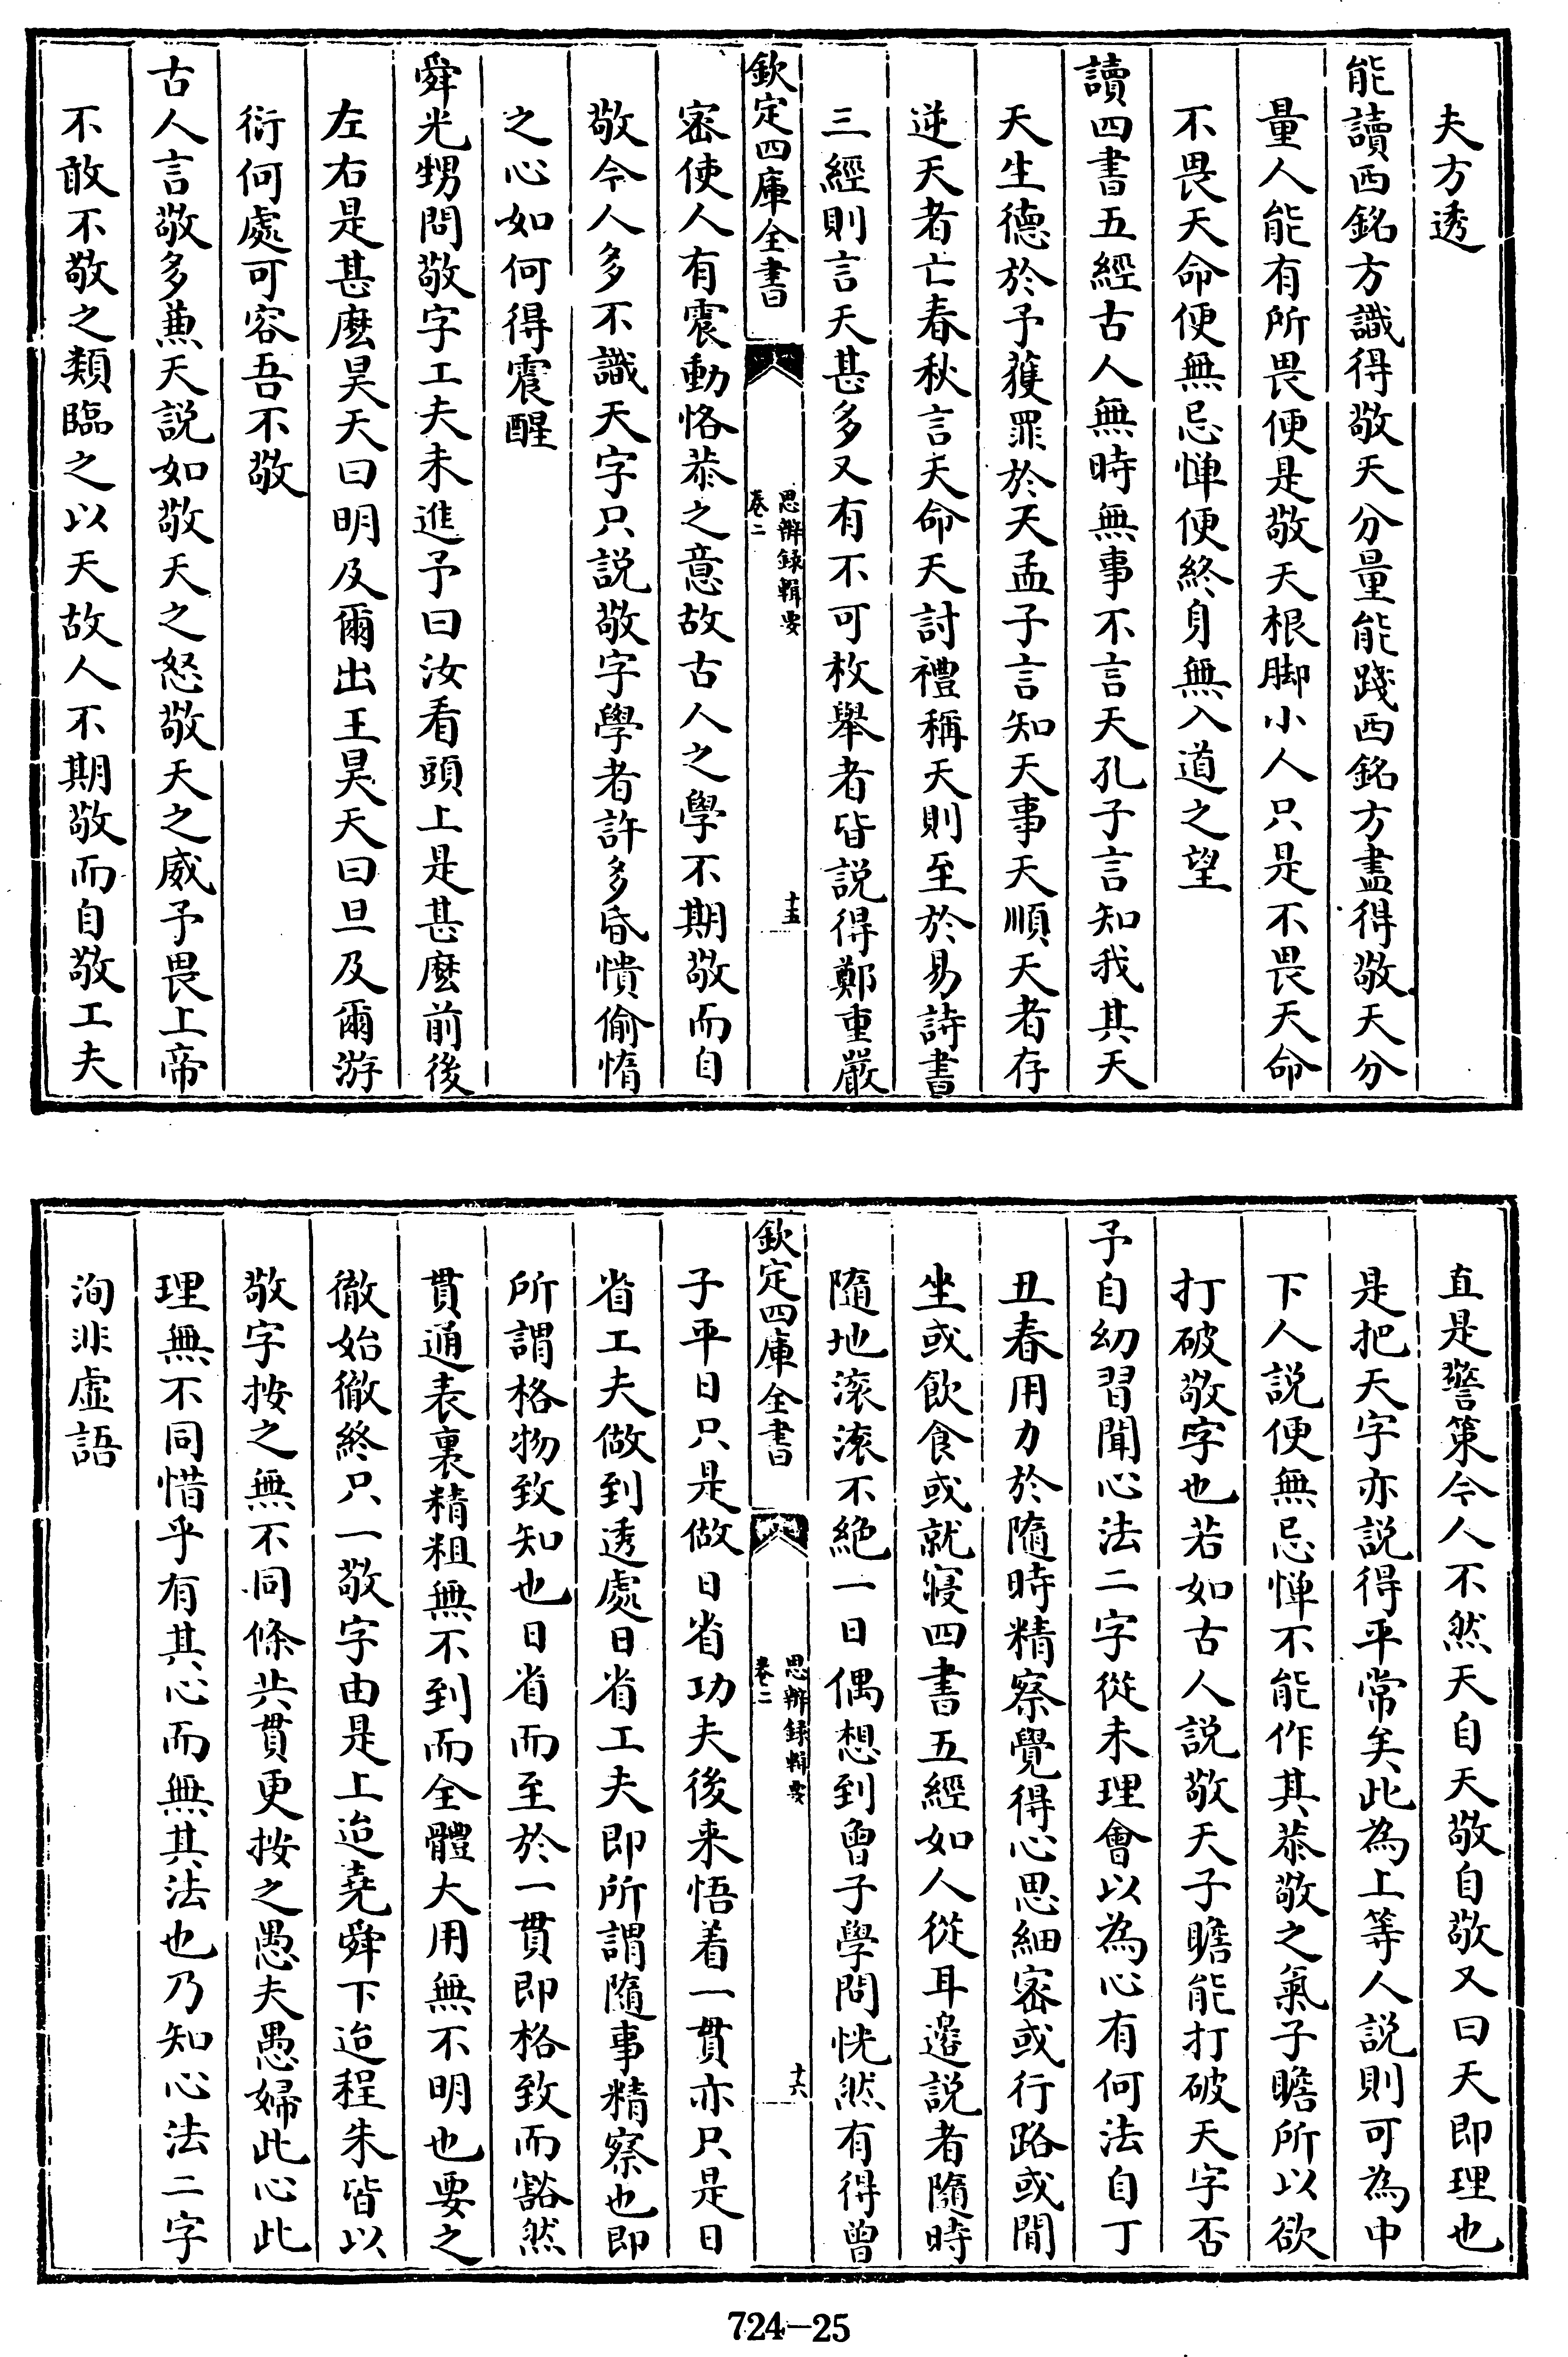 夫方透
能讀西銘方識得敬天分量能踐西銘方盡得敬天分
量人能有所畏便是敬天根脚小人只是不畏天命
不畏天命便無忌憚便終身無入道之望
讀四書五經古人無時無事不言天孔子言知我其天
天生德於予獲罪於天孟子言知天事天順天者存
逆天者亡春秋言天命天討禮稱天則至於易詩書
三經則言天甚多又有不可枚舉者皆説得鄭重嚴
欽定四庫全書
思辨録輯要
卷二
十五
密使人有震動恪恭之意故古人之學不期敬而自
敬今人多不識天字只説敬字學者許多昏憒偷惰
之心如何得震醒
舜光甥問敬字工夫未進予曰汝看頭上是甚麽前後
左右是甚麽昊天曰明及爾出王昊天曰旦及爾游
衍何處可容吾不敬
古人言敬多兼天説如敬天之怒敬天之威予畏上帝
不敢不敬之類臨之以天故人不期敬而自敬工夫
直是警策今人不然天自天敬自敬又曰天即理也
是把天字亦説得平常矣此為上等人説則可為中
下人説便無忌憚不能作其恭敬之氣子瞻所以欲
打破敬字也若如古人説敬天子瞻能打破天字否
予自幼習聞心法二字從未理會以為心有何法自丁
丑春用力於隨時精察覺得心思細密或行路或閒
坐或飲食或就寢四書五經如人從耳邊説者隨時
隨地滚滚不絶一日偶想到曾子學問恍然有得曾
欽定四庫全書
思辨録輯要
卷二
十六
子平日只是做日省功夫後来悟着一貫亦只是日
省工夫做到透處日省工夫即所謂隨事精察也即
所謂格物致知也日省而至於一貫即格致而豁然
貫通表裏精粗無不到而全體大用無不明也要之
徹始徹終只一敬字由是上迨堯舜下迨程朱皆以
敬字按之無不同條共貫更按之愚夫愚婦此心此
理無不同惜乎有其心而無其法也乃知心法二字
洵非虛語
724—25